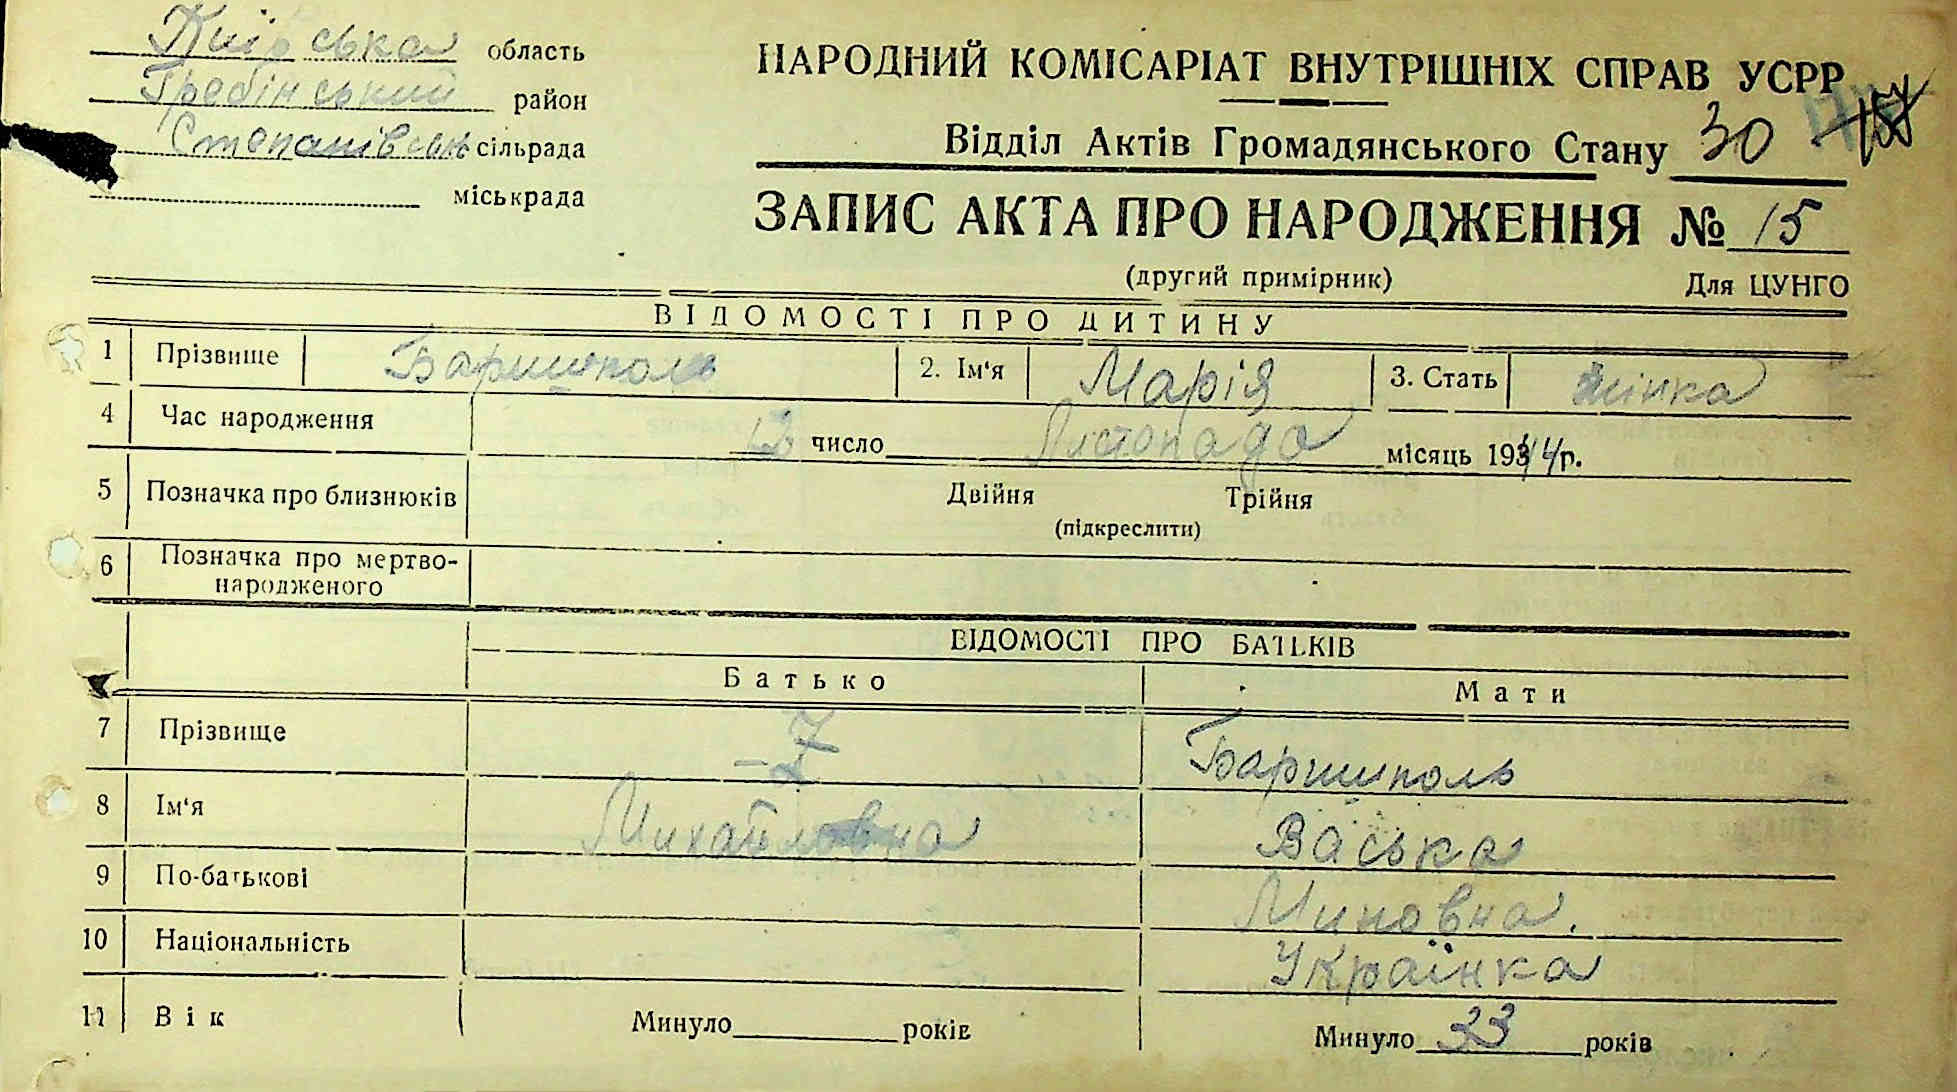 Київська область
Гребінський район
Степанівськ сільрада
міськрада
НАРОДНИЙ КОМІСАРІАТ ВНУТРІШНІХ СПРАВ УСРР
Відділ Актів Громадянського Стану 30
ЗАПИС АКТА ПРО НАРОДЖЕННЯ № 15
(другий примірник) Для ЦУНГО
ВІДОМОСТІ ПРО ДИТИНУ
1 Прізвище Баришполь 2. Ім'я Марія 3. Стать жінка
4 Час народження число Листопада місяць 1944 р.
5 Позначка про близнюків Двійня Трійня
(підкреслити)
6 Позначка про мертво-
народженого
ВІДОМОСТІ ПРО БАТЬКІВ
Батько Мати
7 Прізвище Баришполь
8 Ім'я Михайловна Васька
9 По-батькові Миновна.
10 Національність Українка
11 Вік Минуло років Минуло 33 років